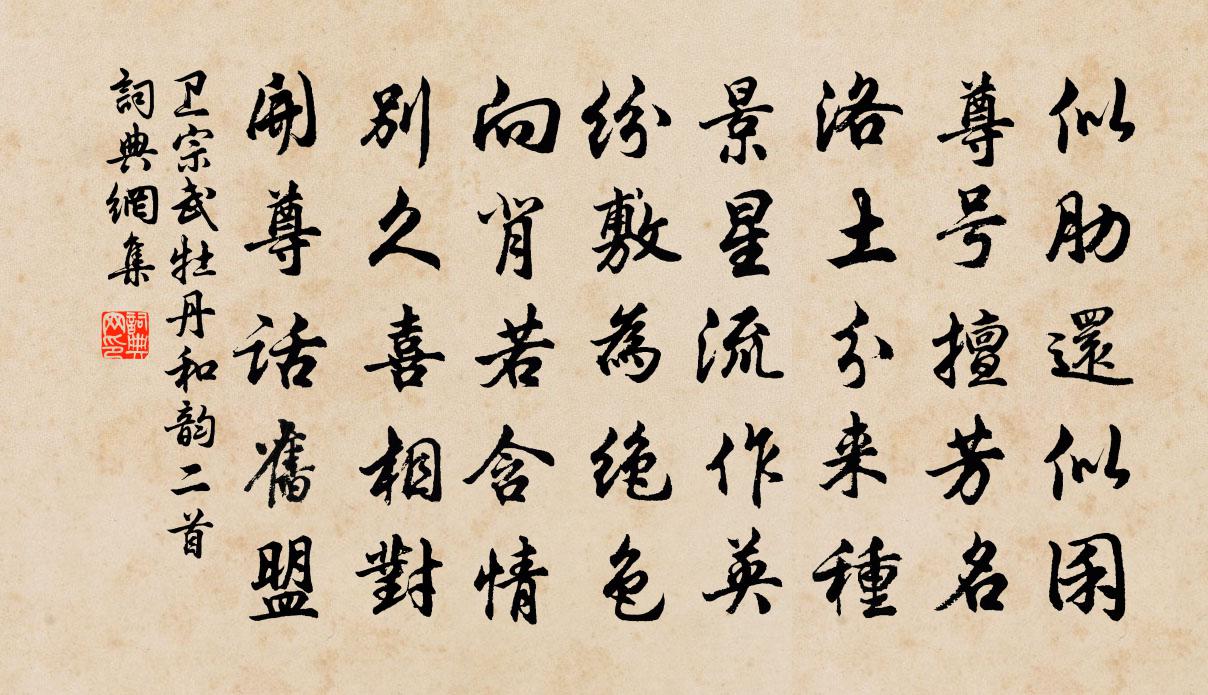 似肋還似困
尊号擅芳名
洛土分来種
景星流作英
紛敷為絶色
向背若含情
別久喜相對
開尊話舊盟
卫宗武牡丹和韵二首
詞典網集
詞典网印